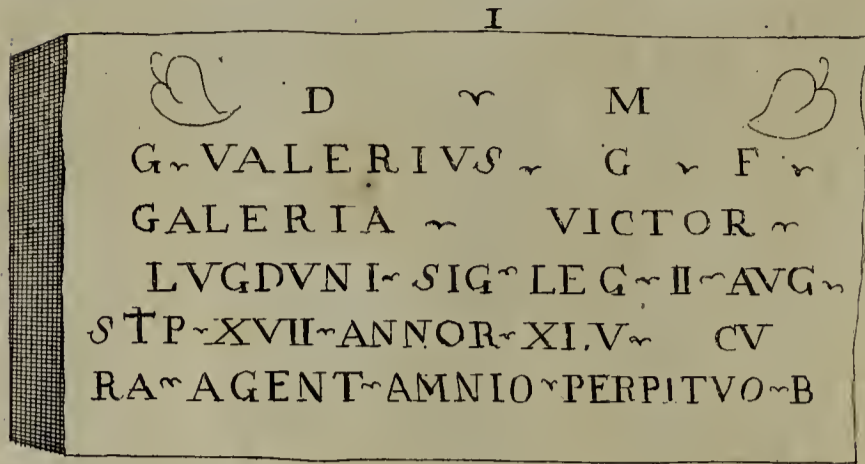 I
D M
G VALERIVS G F
GALERIA VICTOR
LVGDVNI SIG LEG II AVG
STP XVII ANNOR XI.V CV
RA AGENT AMNIO PERPITVO B